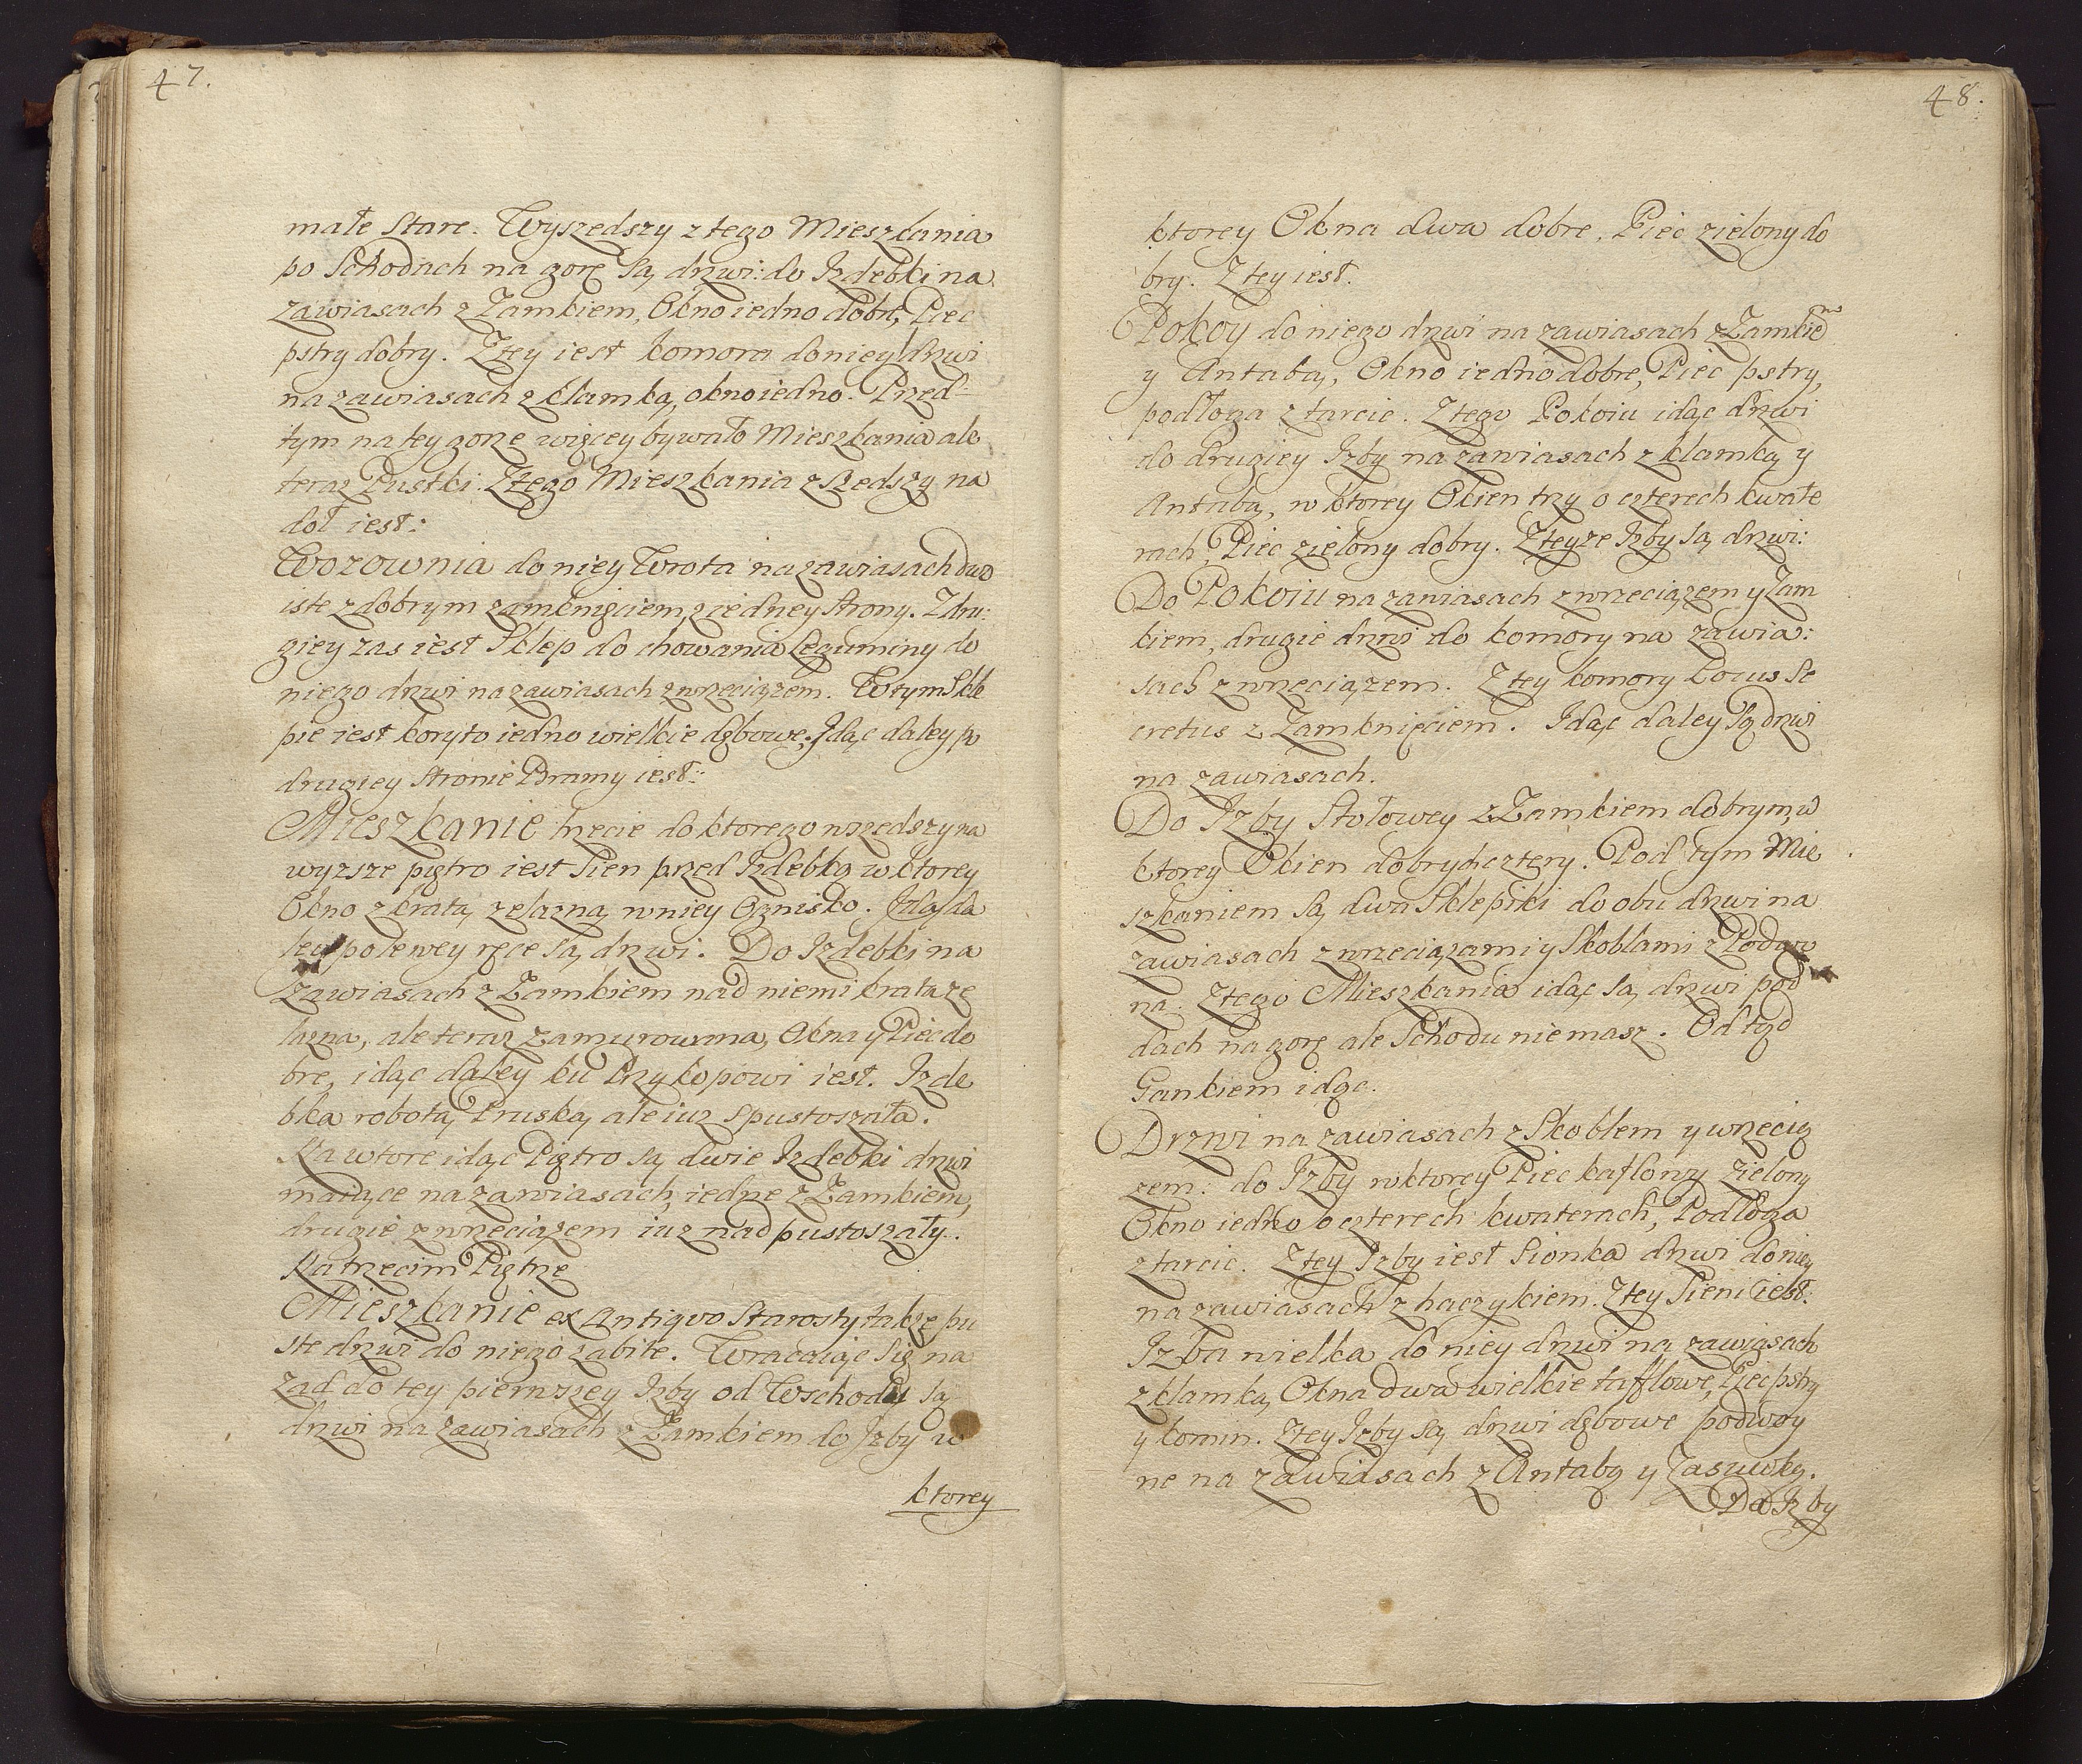 47.
małe Stare. Wyszedszy z tego Mieszkania
po Schodach na gorę są drzwi: do Izdebki na
zawiasach z Zamkiem, Okno iedno dobre, Piec
pstry dobry. Z tey iest komora do niey drzwi
na zawiasach z klamką, okno iedno. Przed=
tym na tey gorze więcey bywało Mieszkania ale
teraz Pustki. Z tego Mieszkania zszedszy na
doł iest:
Wozownia do niey Wrota na zawiasach dwo
iste z dobrym zamknięciem, z iedney strony. Z dru:
giey zas iest Sklep do chowania Leguminy do
niego drzwi na zawiasach z wrzeciązem. W tym Skle
pie iest koryto iedno wielkie dębowe. Idąc daley po
drugiey stronie Bramy iest:
Mieszkanie trzecie do ktorego wszedszy na
wyzsze piętro iest Sien przed Izdebką w ktorey
Okno z kratą zelazną w niey Ognisko. Idąc da
ley po lewey ręce są drzwi. Do Izdebki na
zawiasach z Zamkiem nad niemi krata ze
lazna, ale teraz zamurowana, Okna y Piec do
bre, idąc daley ku Przykopowi iest. Izde
bka robotą Pruską ale iuz spustoszała.
Na wtore idąc Piętro są dwie Izdebki drzwi
maiące na zawiasach, iedne z Zamkiem,
drugie z wrzeciązem iuz nadpustoszały.
Na trzecim Piętrze
Mieszkanie ex Antiqvo Starosty takze pu
ste drzwi do niego zabite. Wracaiąc Się na
zad do tey pierwszey Izby od Wschodu są
drzwi na zawiasach z Zamkiem do Izby w
ktorey
48.
ktorey Okna dwa dobre, Piec zielony do
bry. Z tey iest.
Pokoy do niego drzwi na zawiasach z Zamkiem
y Antabą, Okno iedno dobre, Piec pstry,
podłoga z tarcic. Z tego Pokoiu idąc drzwi
do drugiey Izby na zawiasach z klamką y
Antabą, w ktorey Okien trzy o czterech kwate
rach, Piec zielony dobry. Z teyze Izby są drzwi:
Do Pokoiu na zawiasach z wrzeciązem y Zam
kiem, drugie drzwi do komory na zawia:
sach z wrzeciązem. Z tey komory Locus Se
cretus z Zamknięciem. Idąc daley są drzwi
na zawiasach.
Do Izby Stołowey z Zamkiem dobrym, w
ktorey Okien dobrych cztery. Pod tym Mie
szkaniem są dwa Sklepiki do obu drzwi na
zawiasach z wrzeciązami y Skoblami z Podwo
na. Z tego Mieszkania idąc są drzwi pod
dach na gorę ale Schodu nie masz. Od tąd
Gankiem idąc.
Drzwi na zawiasach z Skoblem y wrzecią
zem: do Izby w ktorey Piec kaflowy zielony
Okno iedno o czterech kwaterach, Podłoga
z tarcic. Z tey Izby iest Sionka drzwi do niey
na zawiasach z haczykiem. Z tey Sieni iest:
Izba wielka do niey drzwi na zawiasach
z klamką, Okna dwa wielkie taflowe, Piec pstry
y komin. Z tey Izby są drzwi dębowe podwoy
ne na zawiasach z Antabą y Zasuwką.
Do Izby